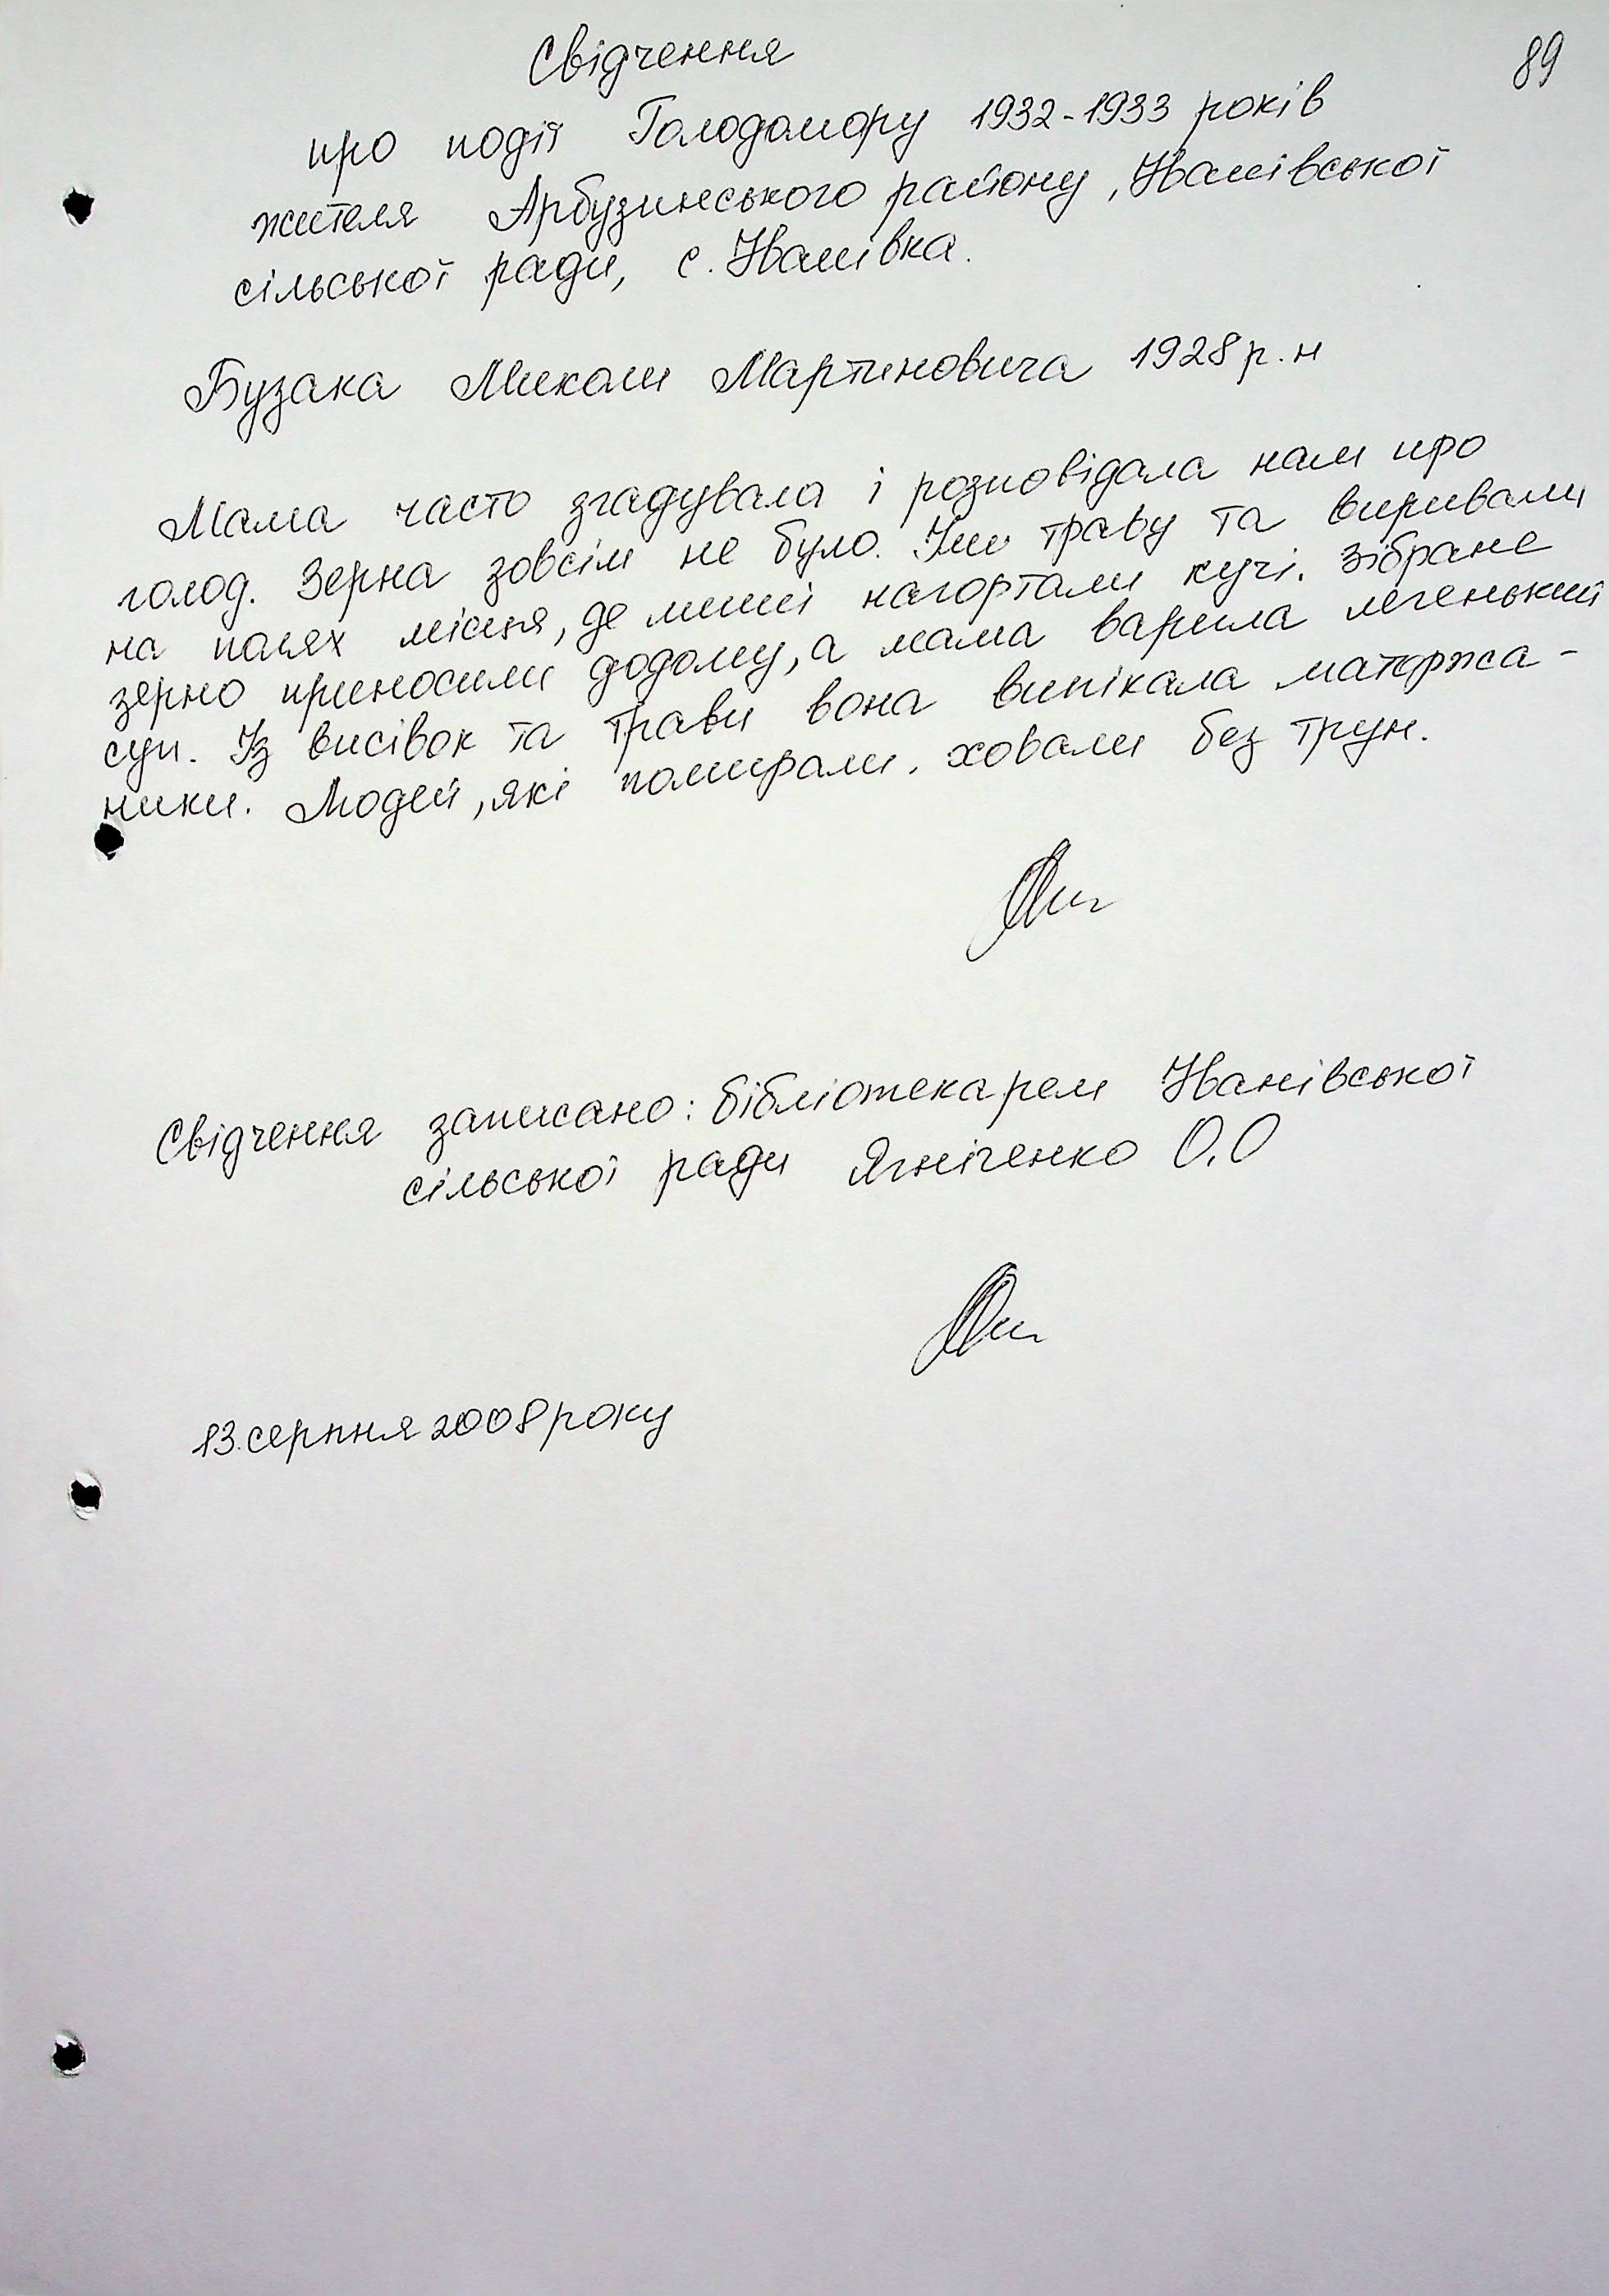 89
Свідчення
про події Голодомору 1932-1933 років
жителя Арбузинського району, Іванівської
сільської ради, с. Іванівка.
Бузака Миколи Мартиновича 1928 р. н
Мама часто згадувала і розповідала нам про
голод. Зерна зовсім не було. Їли траву та виривали
на полях місця, де миші нагортали кучі. Зібране
зерно приносили додому, а мама варила легенький
суп. Із висівок та трави вона випікала маторжа-
ники. Людей, які помирали, ховали без трун.
Свідчення записано: бібліотекарем Іванівської
сільської ради Ягніченко О.О
13.серпня 2008 року